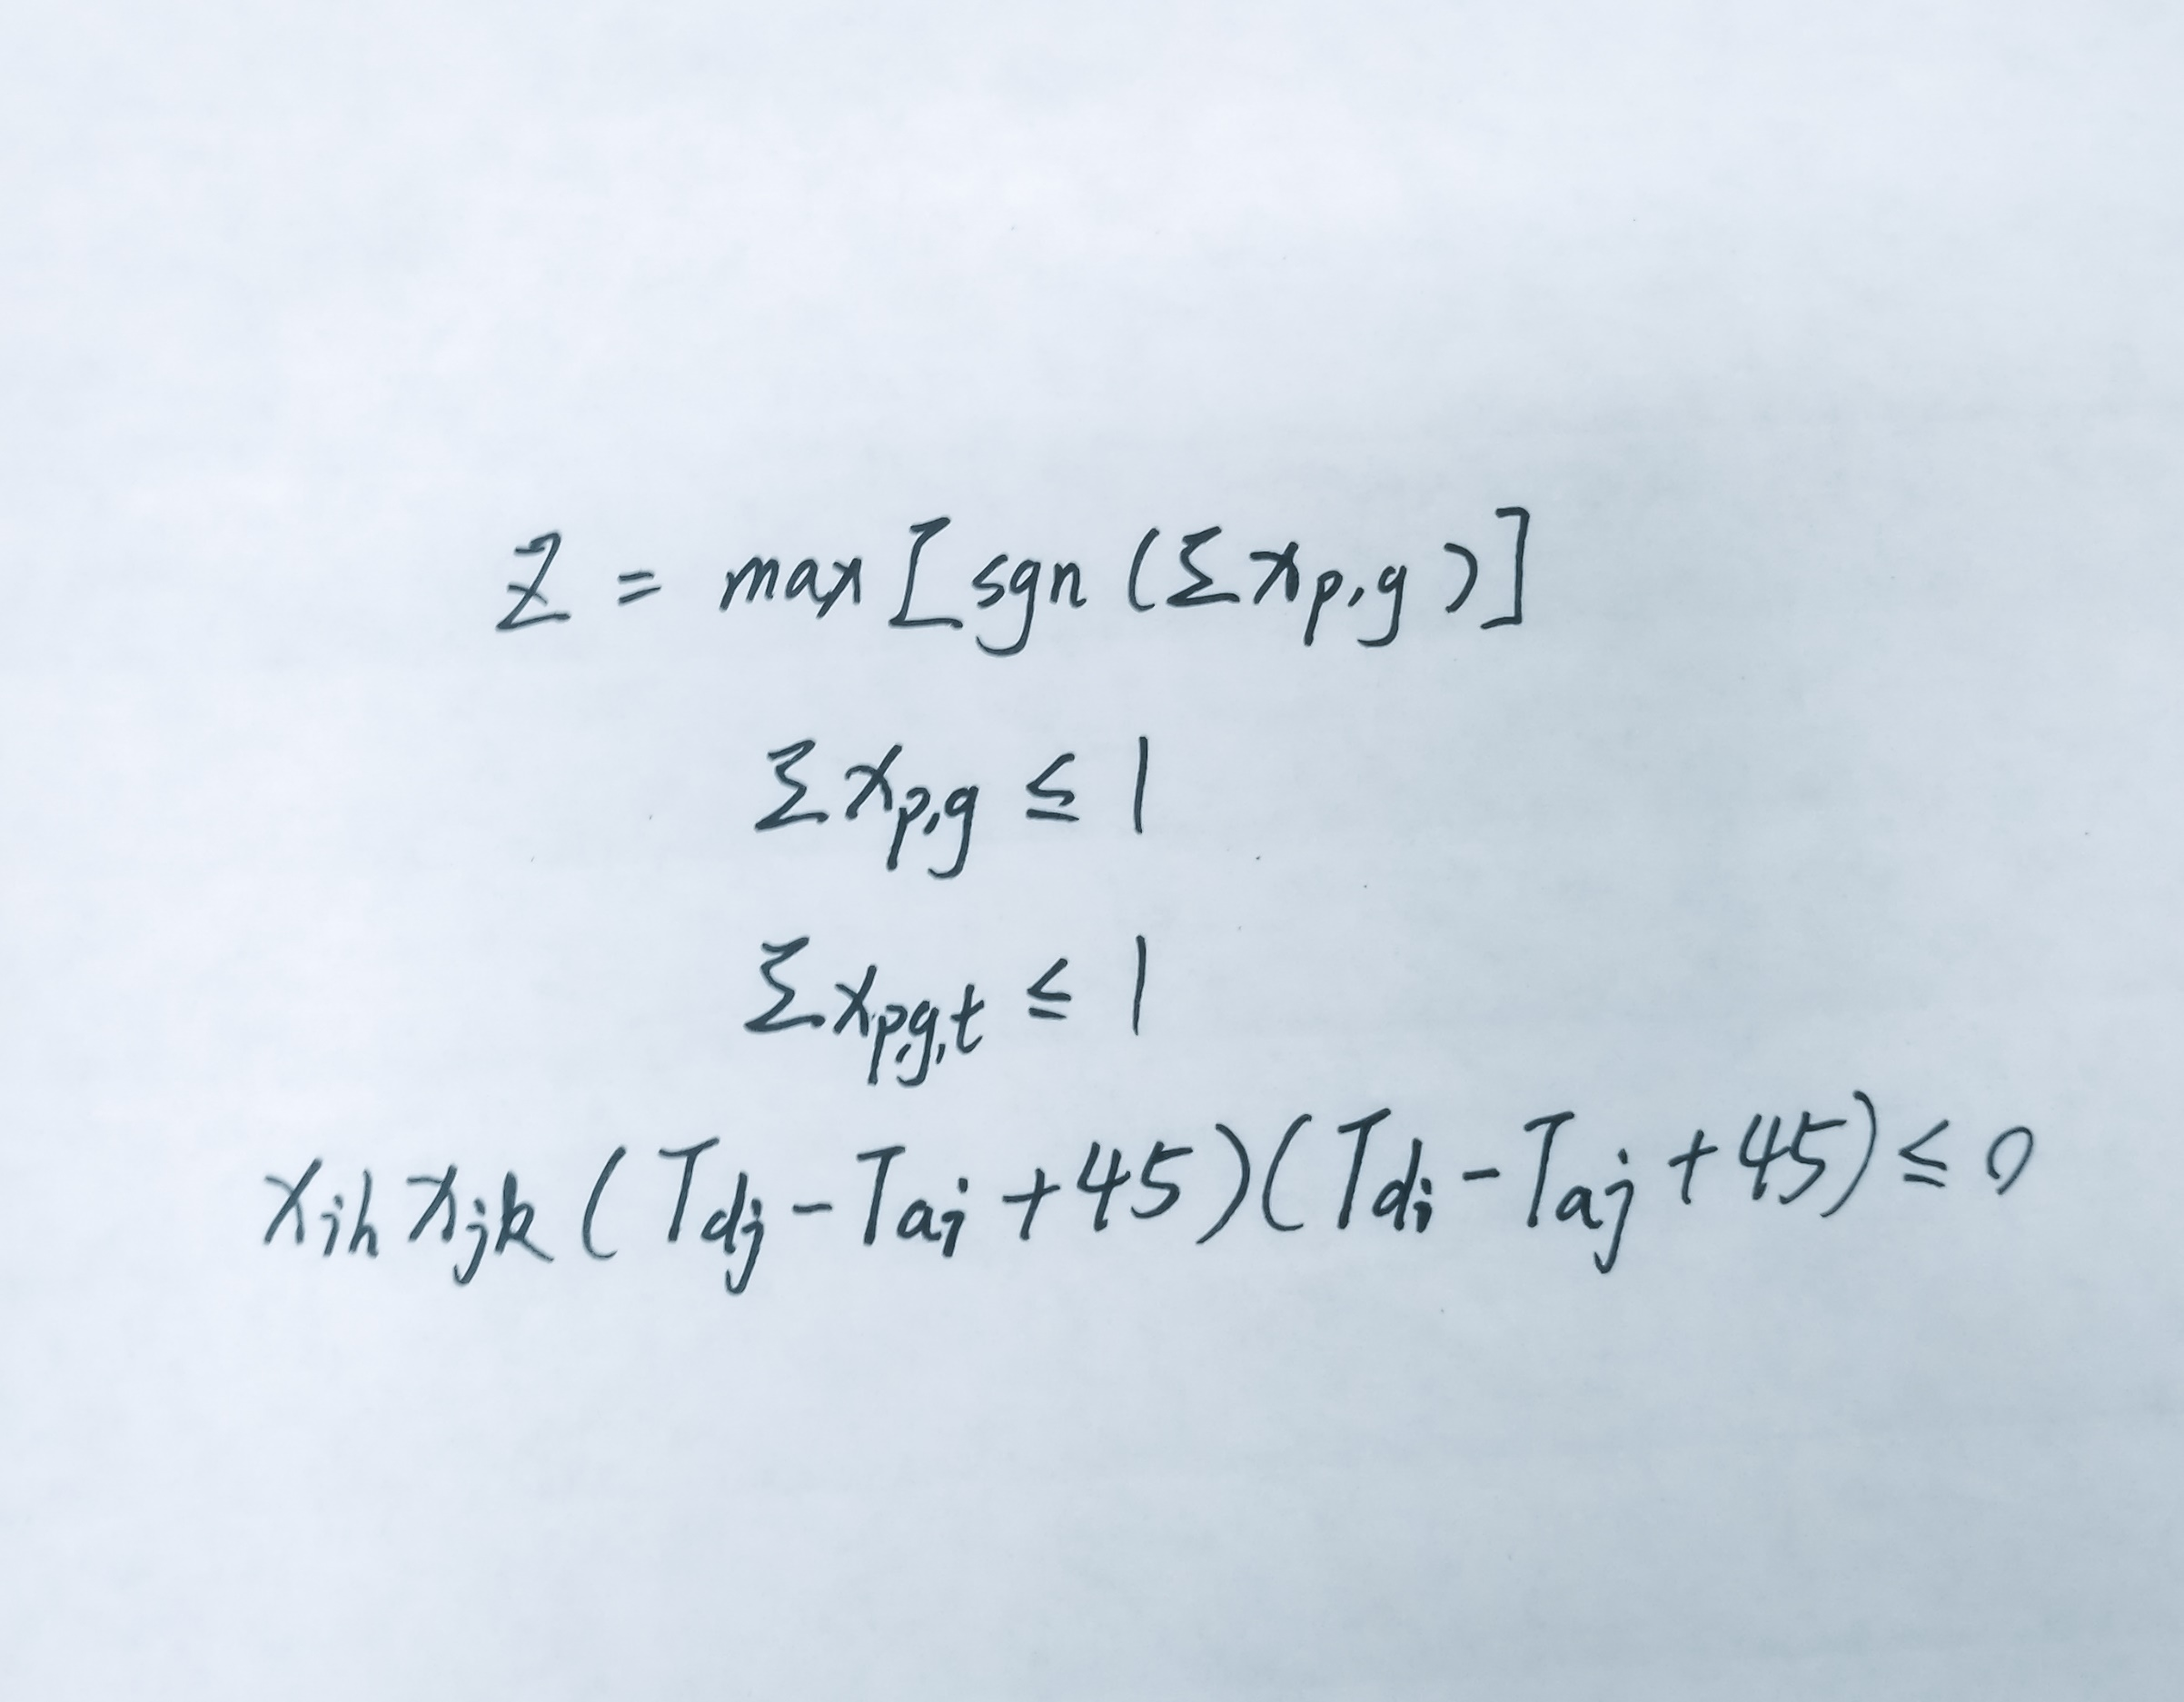 Z = max [sgn (Σ x_{p,g})]
Σ x_{p,g} ≤ 1
Σ x_{p,g,t} ≤ 1
x_{ih} x_{jk} (T_{dj} - T_{ai} + 45)(T_{di} - T_{aj} + 45) ≤ 0